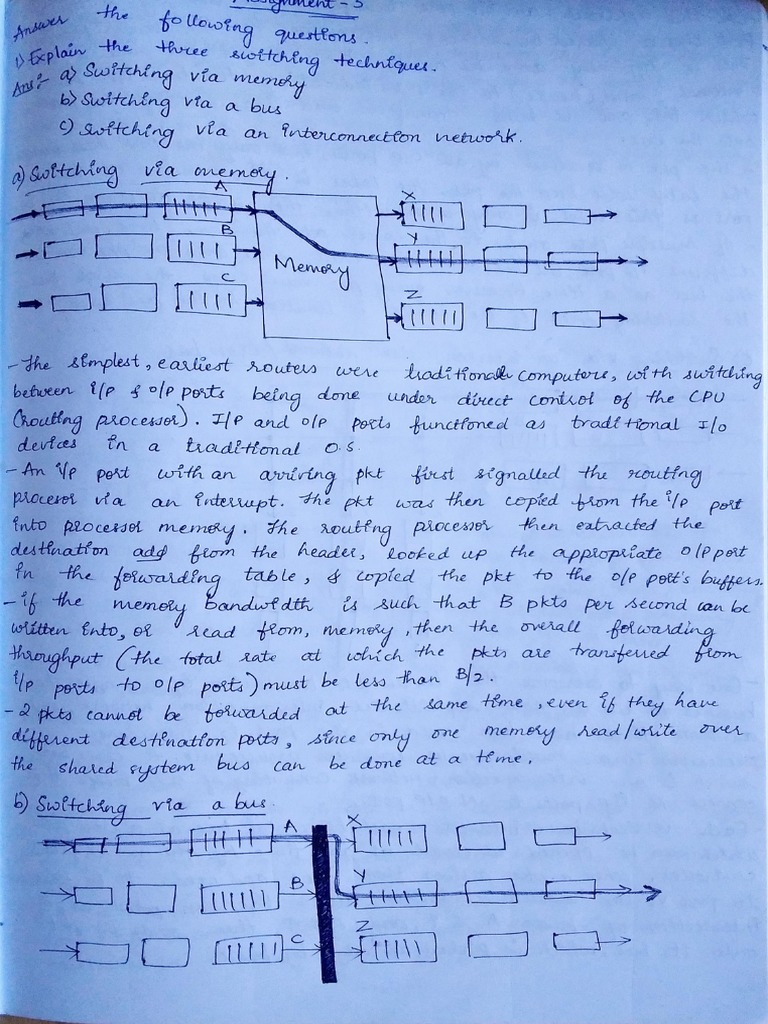 Assignment - 5
Answer the following questions.
1) Explain the three switching techniques.
Ans:- a) Switching via memory
b) Switching via a bus
c) Switching via an interconnection network.
a) Switching via memory.
A X
B Y
Memory
C Z
- The simplest, earliest routers were traditional computers, with switching
between i/p & o/p ports being done under direct control of the CPU
(routing processor). I/p and o/p ports functioned as traditional I/o
devices in a traditional O.S.
- An i/p port with an arriving pkt first signalled the routing
procesor via an interrupt. The pkt was then copied from the i/p port
into processor memory. The routing processor then extracted the
destination add from the header, looked up the appropriate o/p port
in the forwarding table, & copied the pkt to the o/p port's buffers.
- if the memory bandwidth is such that B pkts per second can be
written into, or read from, memory, then the overall forwarding
throughput (the total rate at which the pkts are transferred from
i/p ports to o/p ports) must be less than B/2.
- 2 pkts cannot be forwarded at the same time, even if they have
different destination ports, since only one memory read/write over
the shared system bus can be done at a time.
b) Switching via a bus.
A X
B Y
C Z